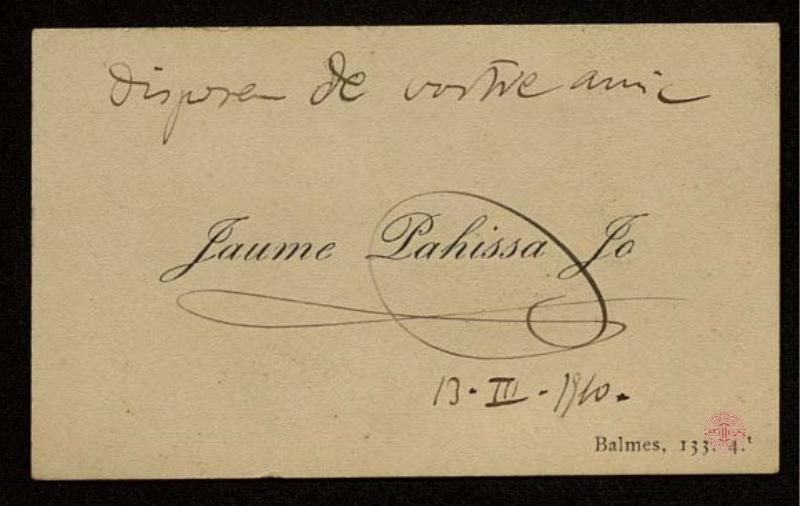 Disposeu de vostre amic
Jaume Pahissa Jo
13-III-1910.
Balmes, 133. 4.t